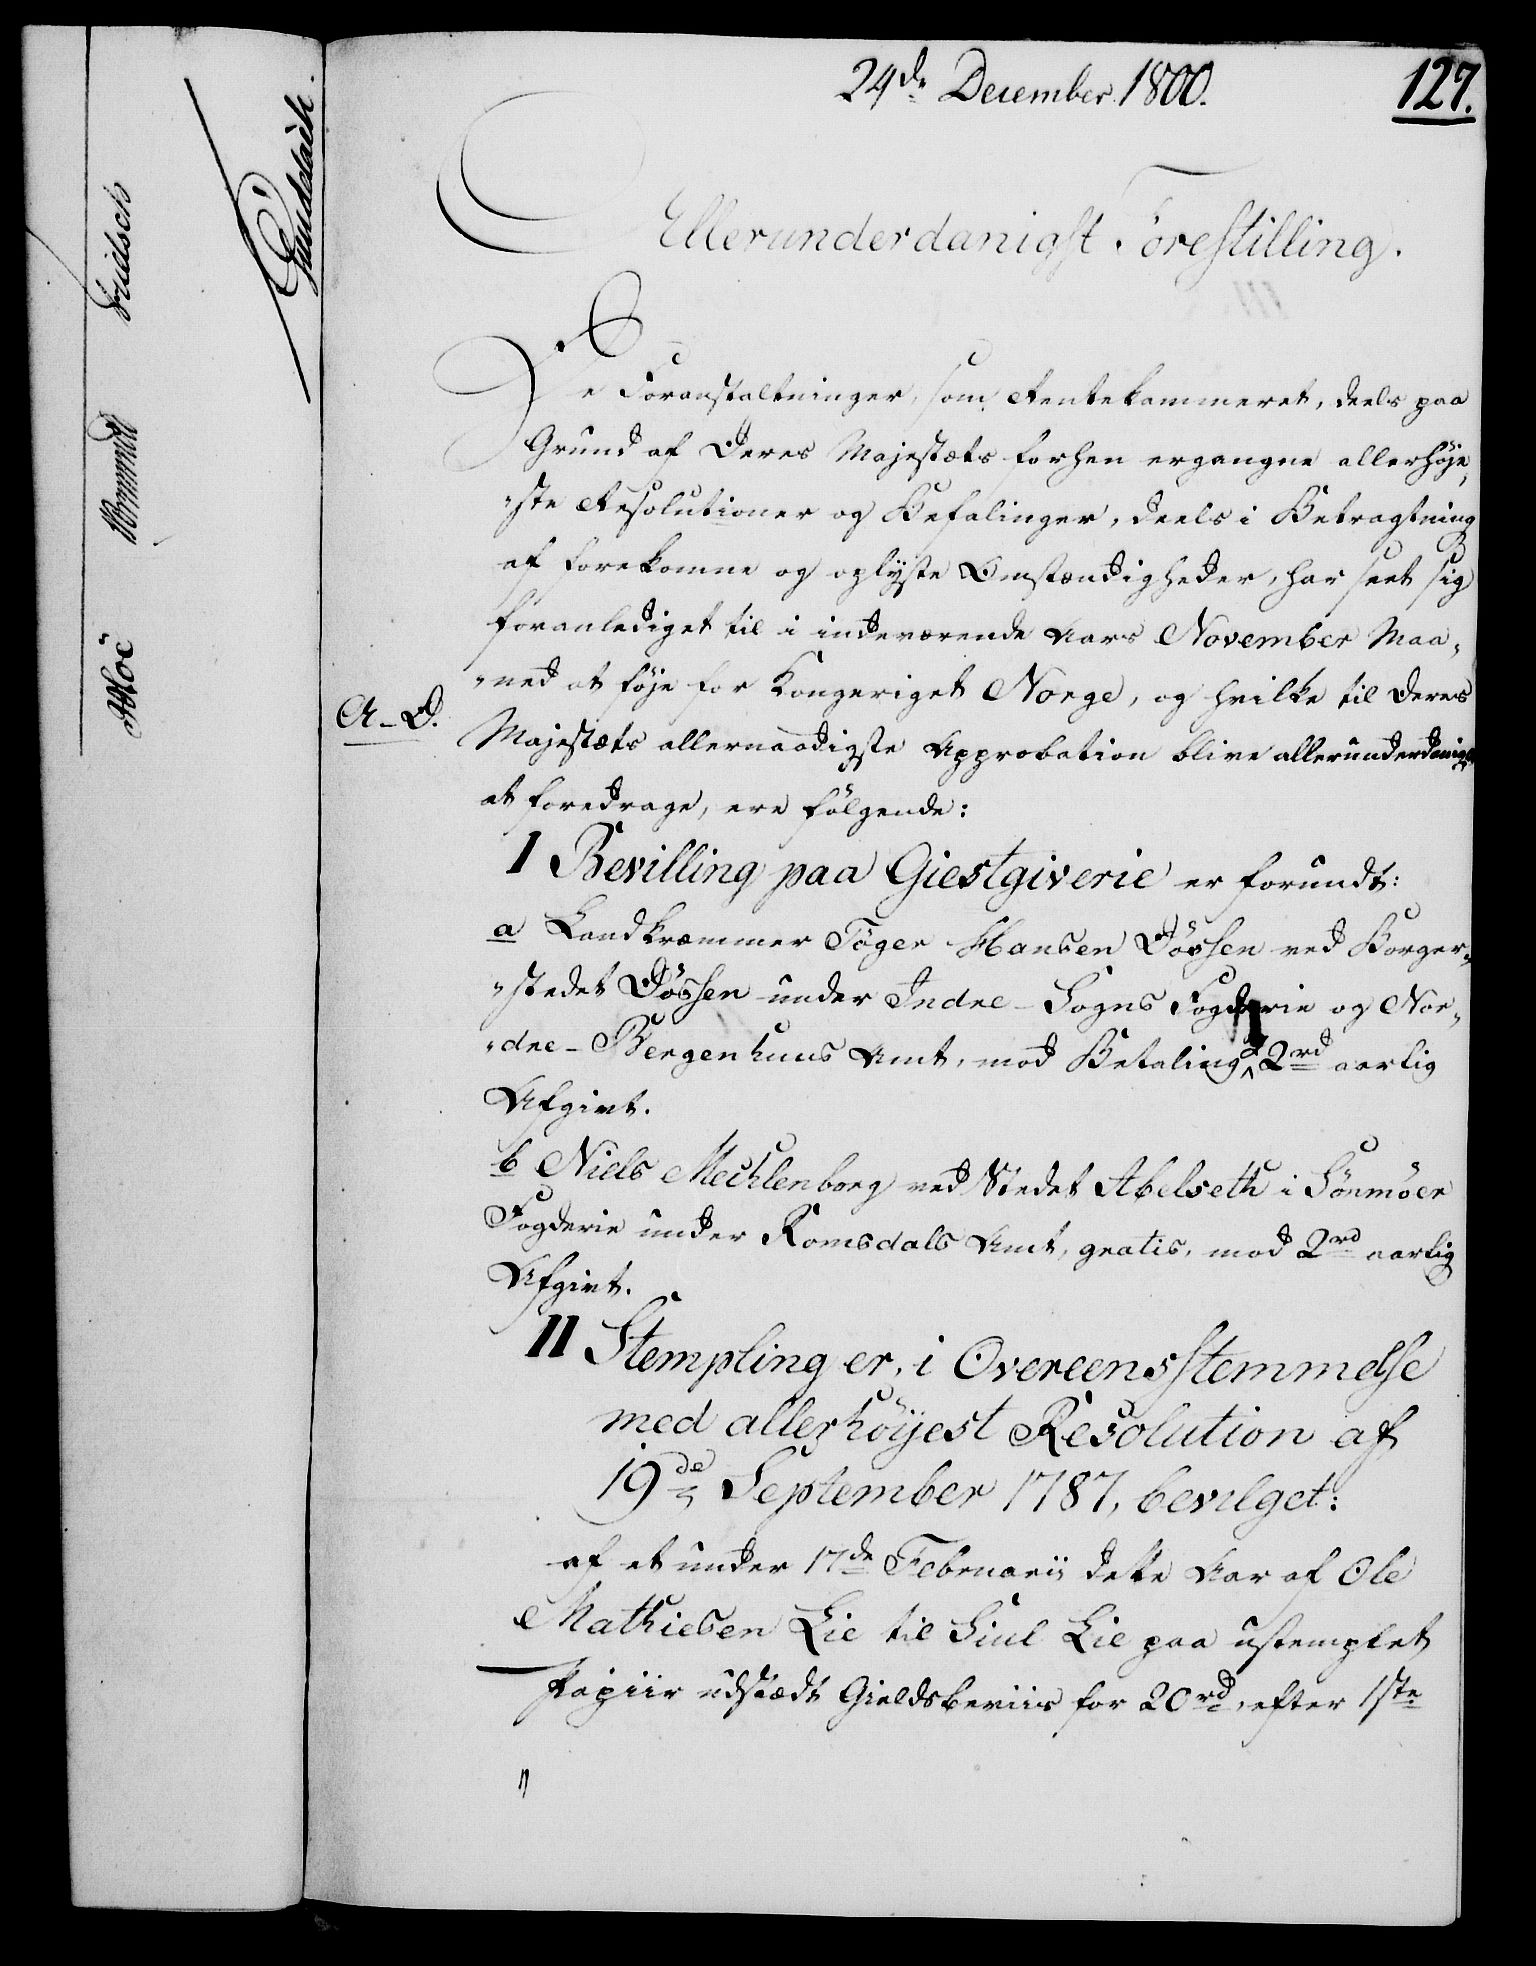 24de December 1800.
127.
Allerunderdanigst Forestilling.
De Foranstaltninger, som Rentekammeret, deels paa
Grund af Deres Majestæts forhen ergangne allerhøje-
"ste Resolutioner og Befalinger, deels i Betragtning
af forekomne og oplyste Omstændigheder, har seet sig
foranlediget til i indeværende Aars November Maa-
"ned at føje for Kongeriget Norge, og hvilke til Deres
A-D.
Majestæts allernaadigste Approbation blive allerunderdanigst
at foredrage, ere følgende:
I Bevilling paa Giestgiverie er forundt:
a Landkræmmer Tøger Hansen Døssen ved Borger-
"stedet Døssen under Indre-Sogns Fogderie og Nor-
"dre-Bergenhuus Amt, mod Betaling af 2rd aarlig
Afgivt.
b Niels Mechlenborg ved Stedet Abelseth i Sönmöer
Fogderie under Romsdals Amt, gratis, mod 2rd aarlig
Afgivt.
II Stempling er, i Overeensstemmelse
med allerhöyest Resolution af
19de September 1787, bevilget:
af et under 17de Februarii dette Aar af Ole
Mathiesen Lie til Siul Lie paa ustemplet
Papiir udstædt Gieldsbeviis for 20rd, efter 1ste